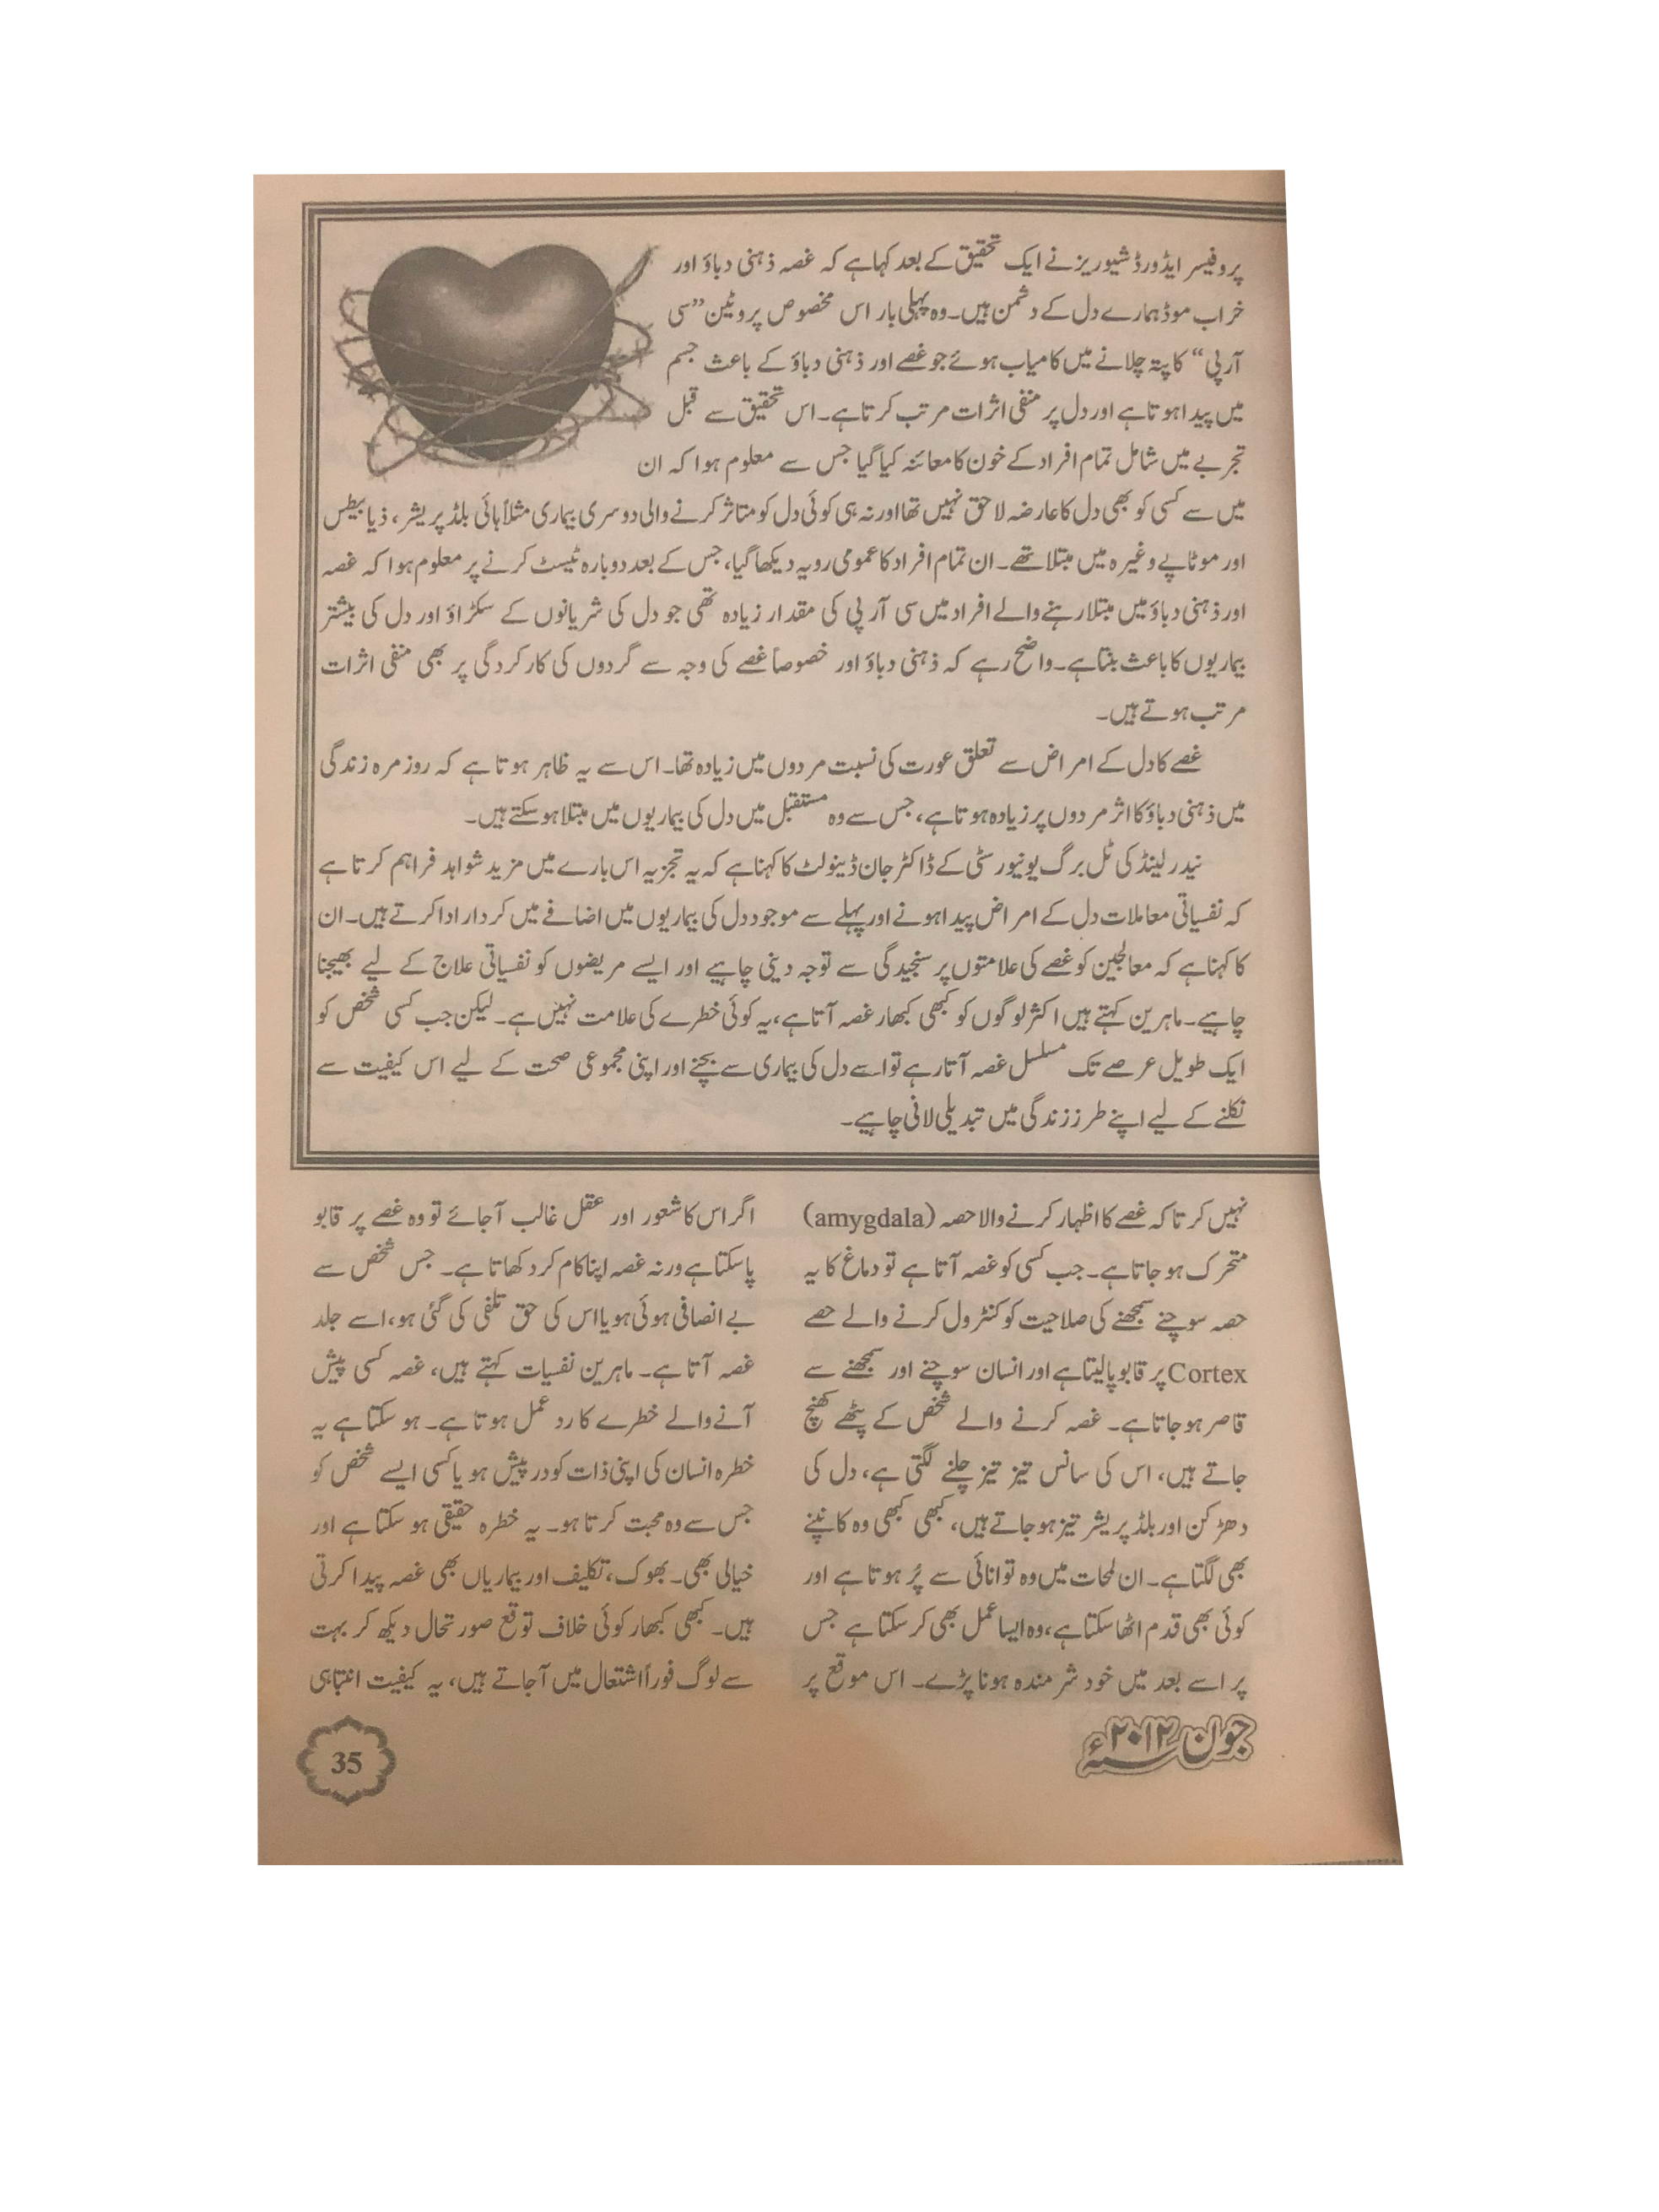 پروفیسر ایڈورڈ شیوریز نے ایک تحقیق کے بعد کہا ہے کہ غصہ ذہنی دباؤ اور
خراب موڈ ہمارے دل کے دشمن ہیں۔ وہ پہلی بار اس مخصوص پروٹین ”سی
آر پی“ کا پتہ چلانے میں کامیاب ہوئے جو غصے اور ذہنی دباؤ کے باعث جسم
میں پیدا ہوتا ہے اور دل پر منفی اثرات مرتب کرتا ہے۔ اس تحقیق سے قبل
تجربے میں شامل تمام افراد کے خون کا معائنہ کیا گیا جس سے معلوم ہوا کہ ان
میں سے کسی کو بھی دل کا عارضہ لاحق نہیں تھا اور نہ ہی کوئی دل کو متاثر کرنے والی دوسری بیماری مثلاً ہائی بلڈ پریشر، ذیابیطس
اور موٹاپے وغیرہ میں مبتلا تھے۔ ان تمام افراد کا عمومی رویہ دیکھا گیا، جس کے بعد دوبارہ ٹیسٹ کرنے پر معلوم ہوا کہ غصہ
اور ذہنی دباؤ میں مبتلا رہنے والے افراد میں سی آر پی کی مقدار زیادہ تھی جو دل کی شریانوں کے سکڑاؤ اور دل کی بیشتر
بیماریوں کا باعث بنتا ہے۔ واضح رہے کہ ذہنی دباؤ اور خصوصاً غصے کی وجہ سے گردوں کی کارکردگی پر بھی منفی اثرات
مرتب ہوتے ہیں۔
غصے کا دل کے امراض سے تعلق عورت کی نسبت مردوں میں زیادہ تھا۔ اس سے یہ ظاہر ہوتا ہے کہ روزمرہ زندگی
میں ذہنی دباؤ کا اثر مردوں پر زیادہ ہوتا ہے، جس سے وہ مستقبل میں دل کی بیماریوں میں مبتلا ہو سکتے ہیں۔
نیدرلینڈ کی ٹل برگ یونیورسٹی کے ڈاکٹر جان ڈینولٹ کا کہنا ہے کہ یہ تجزیہ اس بارے میں مزید شواہد فراہم کرتا ہے
کہ نفسیاتی معاملات دل کے امراض پیدا ہونے اور پہلے سے موجود دل کی بیماریوں میں اضافے میں کردار ادا کرتے ہیں۔ ان
کا کہنا ہے کہ معالجین کو غصے کی علامتوں پر سنجیدگی سے توجہ دینی چاہیے اور ایسے مریضوں کو نفسیاتی علاج کے لیے بھیجنا
چاہیے۔ ماہرین کہتے ہیں اکثر لوگوں کو کبھی کبھار غصہ آتا ہے، یہ کوئی خطرے کی علامت نہیں ہے۔ لیکن جب کسی شخص کو
ایک طویل عرصے تک مسلسل غصہ آتا رہے تو اسے دل کی بیماری سے بچنے اور اپنی مجموعی صحت کے لیے اس کیفیت سے
نکلنے کے لیے اپنے طرز زندگی میں تبدیلی لانی چاہیے۔
نہیں کرتا کہ غصے کا اظہار کرنے والا حصہ (amygdala)
متحرک ہو جاتا ہے۔ جب کسی کو غصہ آتا ہے تو دماغ کا یہ
حصہ سوچنے سمجھنے کی صلاحیت کو کنٹرول کرنے والے حصے
Cortex پر قابو پا لیتا ہے اور انسان سوچنے اور سمجھنے سے
قاصر ہو جاتا ہے۔ غصہ کرنے والے شخص کے پٹھے کھنچ
جاتے ہیں، اس کی سانس تیز تیز چلنے لگتی ہے، دل کی
دھڑکن اور بلڈ پریشر تیز ہو جاتے ہیں، کبھی کبھی وہ کانپنے
بھی لگتا ہے۔ ان لمحات میں وہ توانائی سے پُر ہوتا ہے اور
کوئی بھی قدم اٹھا سکتا ہے، وہ ایسا عمل بھی کر سکتا ہے جس
پر اسے بعد میں خود شرمندہ ہونا پڑے۔ اس موقع پر
اگر اس کا شعور اور عقل غالب آ جائے تو وہ غصے پر قابو
پا سکتا ہے ورنہ غصہ اپنا کام کر دکھاتا ہے۔ جس شخص سے
بے انصافی ہوئی ہو یا اس کی حق تلفی کی گئی ہو، اسے جلد
غصہ آتا ہے۔ ماہرین نفسیات کہتے ہیں، غصہ کسی پیش
آنے والے خطرے کا رد عمل ہوتا ہے۔ ہو سکتا ہے یہ
خطرہ انسان کی اپنی ذات کو درپیش ہو یا کسی ایسے شخص کو
جس سے وہ محبت کرتا ہو۔ یہ خطرہ حقیقی ہو سکتا ہے اور
خیالی بھی۔ بھوک، تکلیف اور بیماریاں بھی غصہ پیدا کرتی
ہیں۔ کبھی کبھار کوئی خلاف توقع صورتحال دیکھ کر بہت
سے لوگ فوراً اشتعال میں آ جاتے ہیں، یہ کیفیت انتہائی
جون ۲۰۱۲ء
35